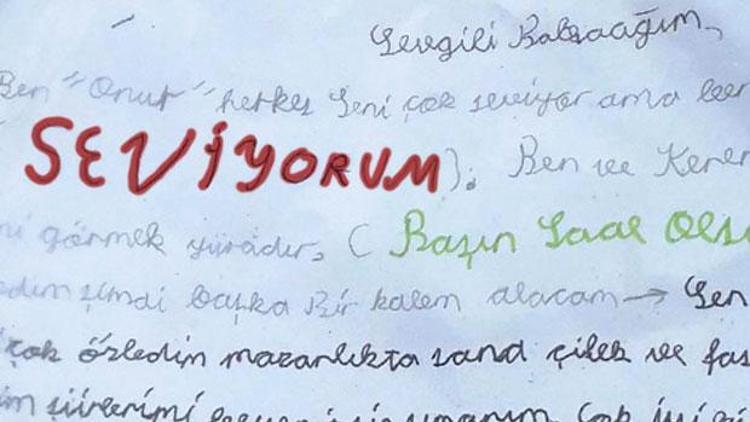 Sevgili Babacağım,
Ben "Onur" herkes seni çok seviyor ama ben
SEVİYORUM). Ben ve Keren
ni görmek yüradır, ( Başın Saal Ols
edim şimdi başka Bir kalem alacam → Sen
çok özledim mazarlıkta sana çilek ve fas